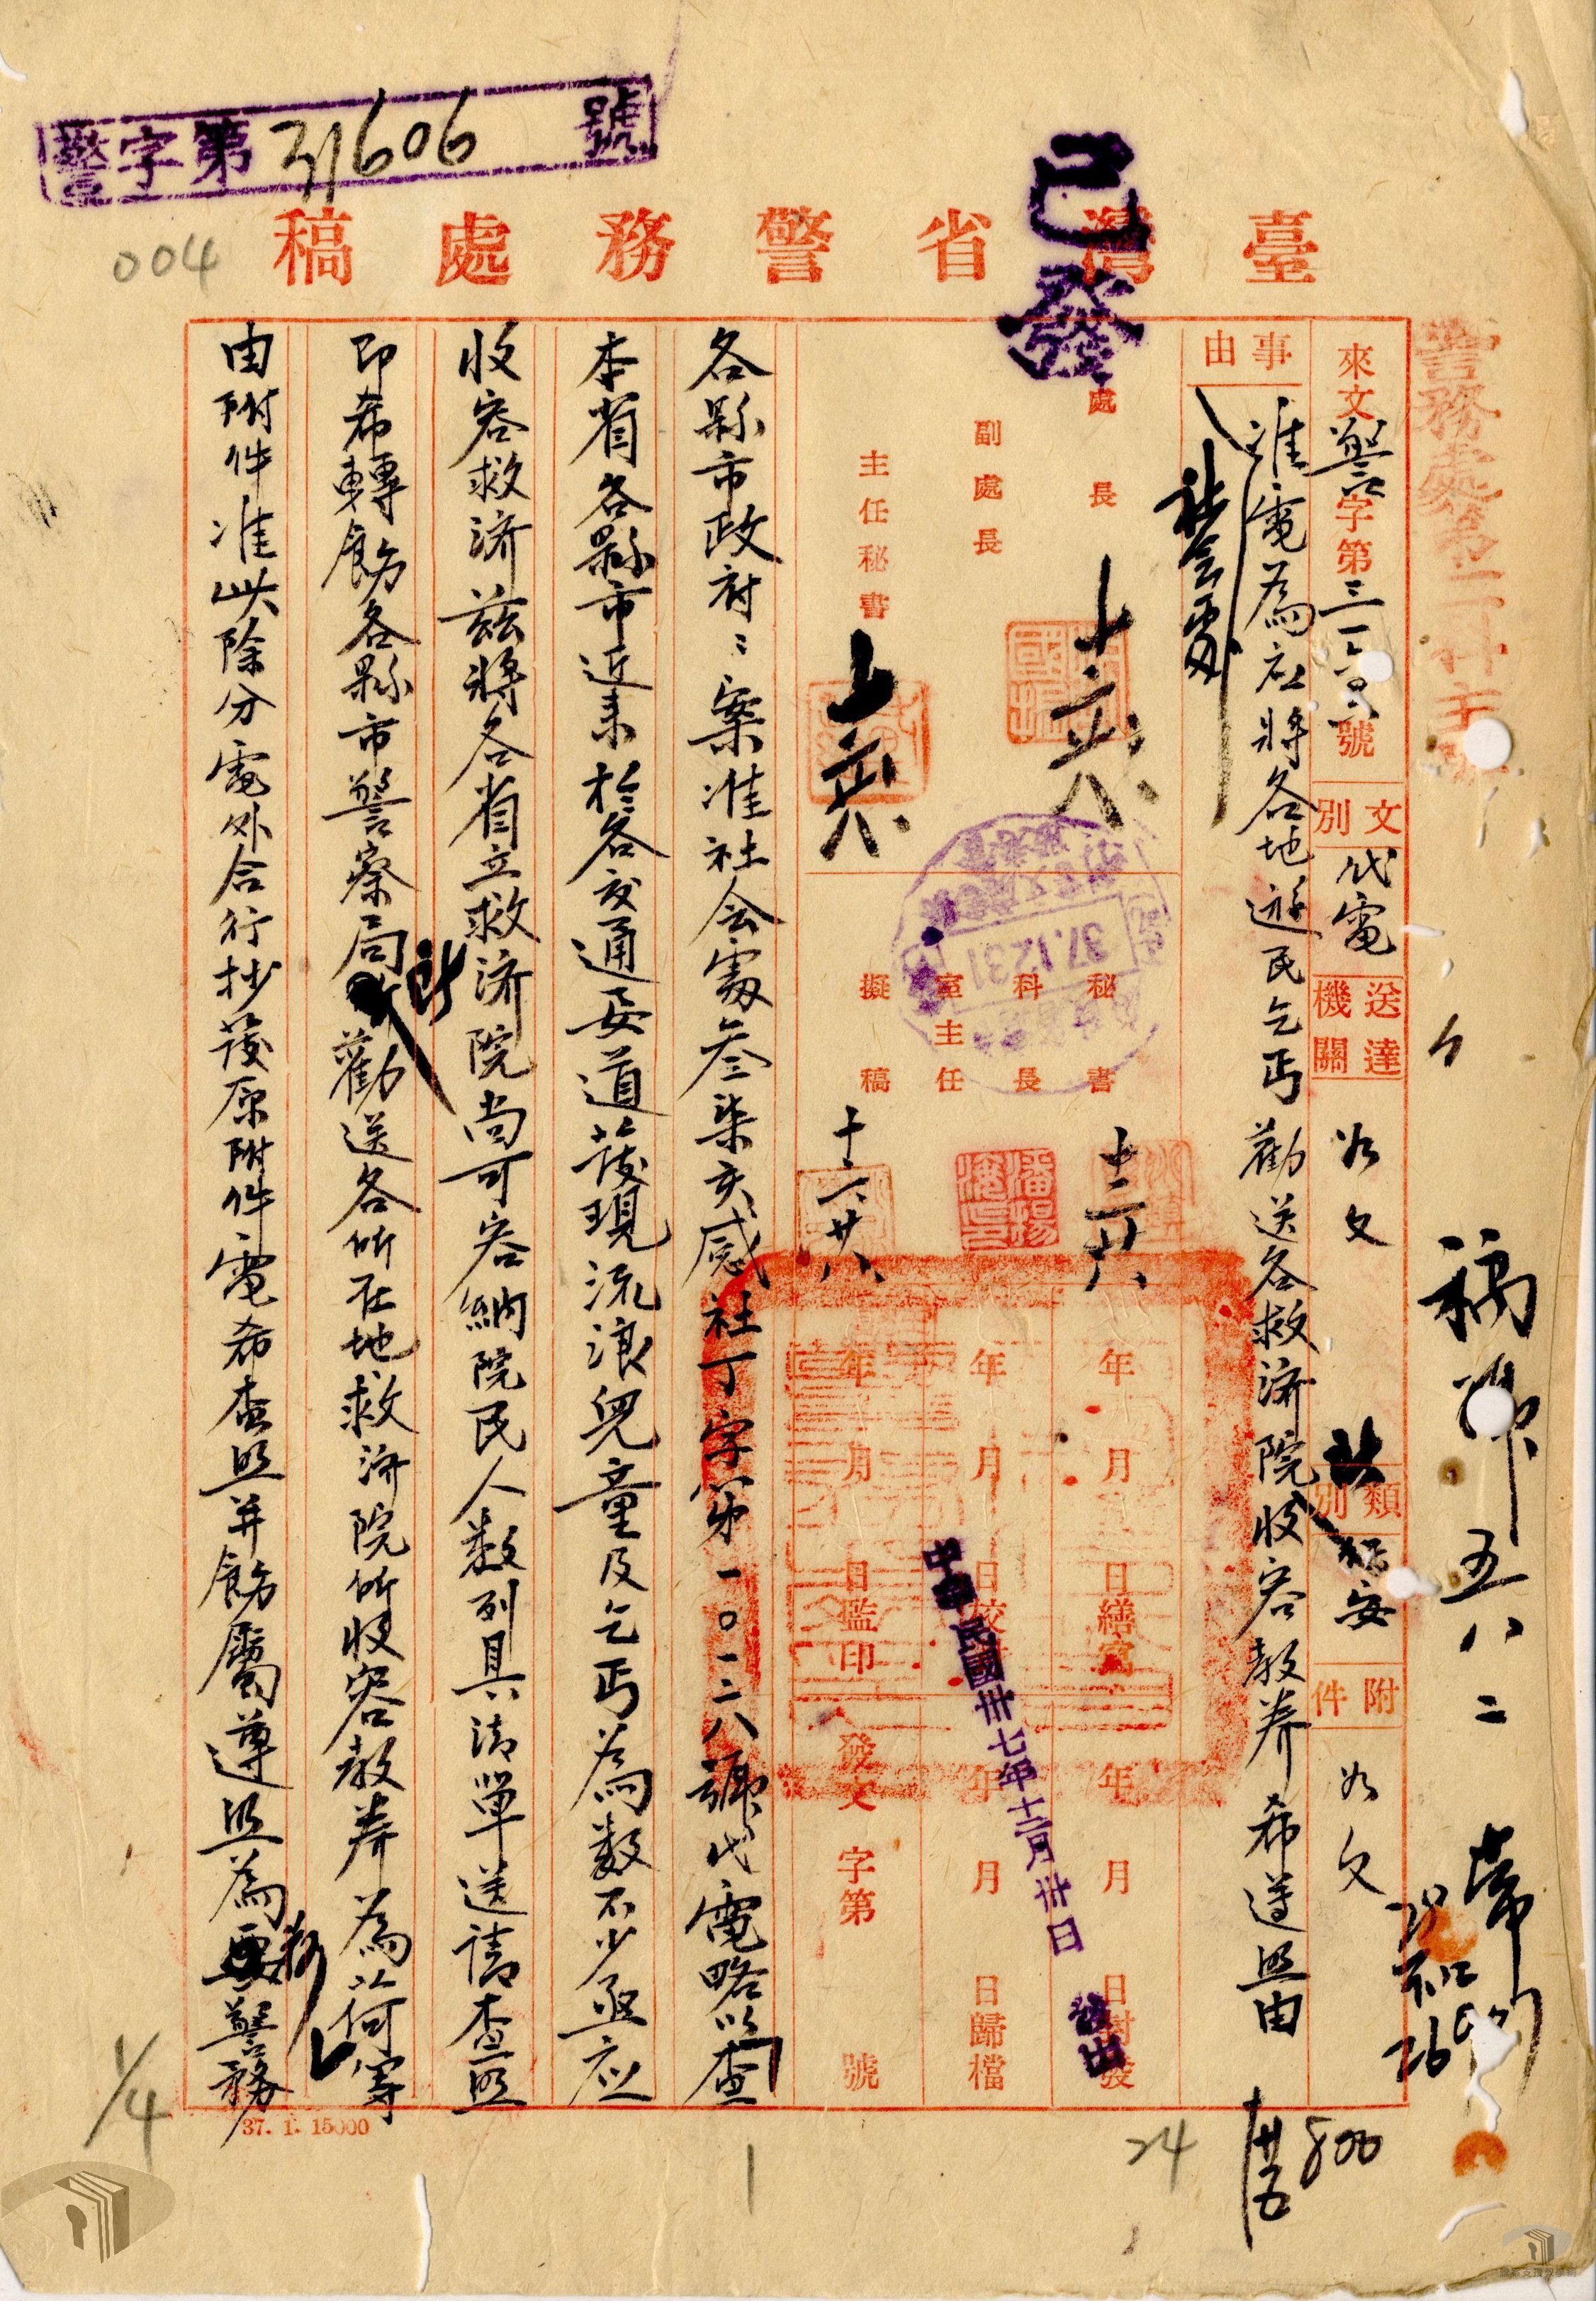 警字第31606號
004
已發
臺灣省警務處稿
來文警字第三一六〇六號
文別
代電
送達機關
如文
類別
附件
如文
稿
五八二
事由
准電為社將各地遊民乞丐勸送各救濟院收容教養希遵照由
社会處
處長
十二廿八
副處長
主任秘書
秘書
十二廿八
科長
室主任
擬稿
十二廿八
37.12.31
年月日繕寫
年月日校
年月日監印
年月日封發
年月日歸檔
發文字第號
中華民國卅七年十二月卅日
發出
各縣市政府:案准社会處叁柒亥感社丁字第一〇一二八號代電略以查
本省各縣市近来於各交通要道發現流浪兒童及乞丐為数不少亟應
收容救济兹將各省立救济院尚可容納院民人数列具清單送請查照
即希轉飭各縣市警察局所勸送各所在地救济院所收容教养為荷等
由附件准此除分電外合行抄發原附件電希查照并飭屬遵照為要警務
37. 1. 15000
1/4
1
24
800